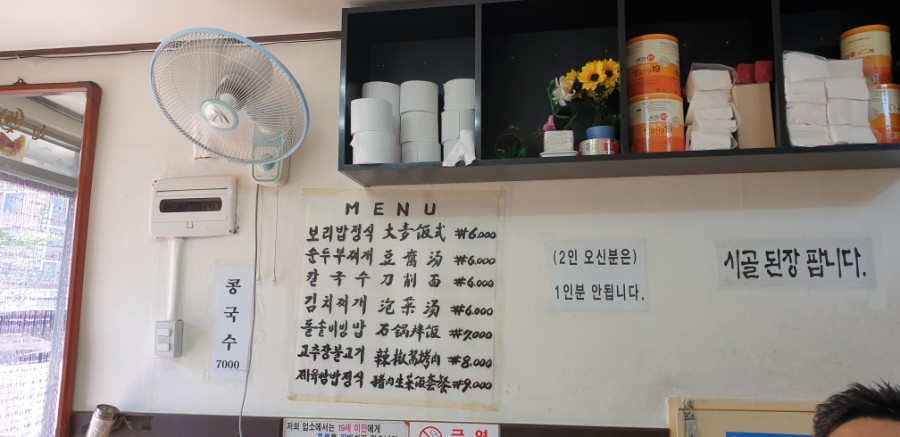 MENU
보리밥정식 大麦饭式 ₩6.000
순두부찌개 豆腐汤 ₩6.000
칼국수 刀削面 ₩6.000
김치찌개 泡菜汤 ₩6.000
돌솥비빔밥 石锅拌饭 ₩7.000
고추장불고기 辣椒酱烤肉 ₩8.000
제육쌈밥정식 猪肉生菜饭套餐 ₩9.000
콩국수
7000
(2인 오신분은)
1인분 안됩니다.
시골 된장 팝니다.
저희 업소에서는 19세 미만에게
금연